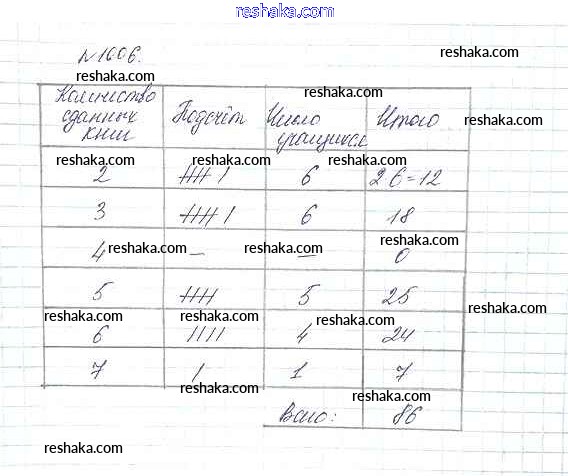 reshaka.com
reshaka.com
№1606.
reshaka.com
reshaka.com
Количество сданных книг | Подсчёт | Число учащихся | Итого
reshaka.com
reshaka.com reshaka.com reshaka.com
2 | 𝍸 I | 6 | 2·6=12
3 | 𝍸 I | 6 | 18
reshaka.com reshaka.com reshaka.com
4 | — | — | 0
5 | 𝍸 | 5 | 25
reshaka.com
reshaka.com reshaka.com
6 | IIII | 4 | 24
7 | I | 1 | 7
reshaka.com reshaka.com
Всего: 86
reshaka.com
reshaka.com